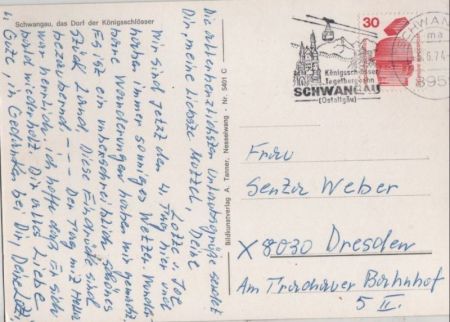 Schwangau, das Dorf der Königsschlösser
Die allerherzlichsten Urlaubsgrüße sendet
Dir, meine liebste Deine
Lotte u. Joe
Wir sind jetzt den 4. Tag hier und
haben immer sonniges Wetter. Wunder-
bare Wanderungen haben wir gemacht.
Es ist ein unbeschreiblich schönes
Stück Land. Diese Eindrücke sind
bezaubernd. --- Der Tag mit
war herrlich, ich hoffe daß Er sich
bald wiederholt. Dir alles Liebe
u. Gute, in Gedanken bei Dir, Deine Lotte
Bildkunstverlag A. Tanner, Nesselwang - Nr. 5401 C
Königsschlösser
Tegelbergbahn
SCHWANGAU
(Ostallgäu)
30
SCHWANGAU
ma
6.74
895
Frau
Senta Weber
X 8030 Dresden
Am Trachauer Bahnhof
5 II.